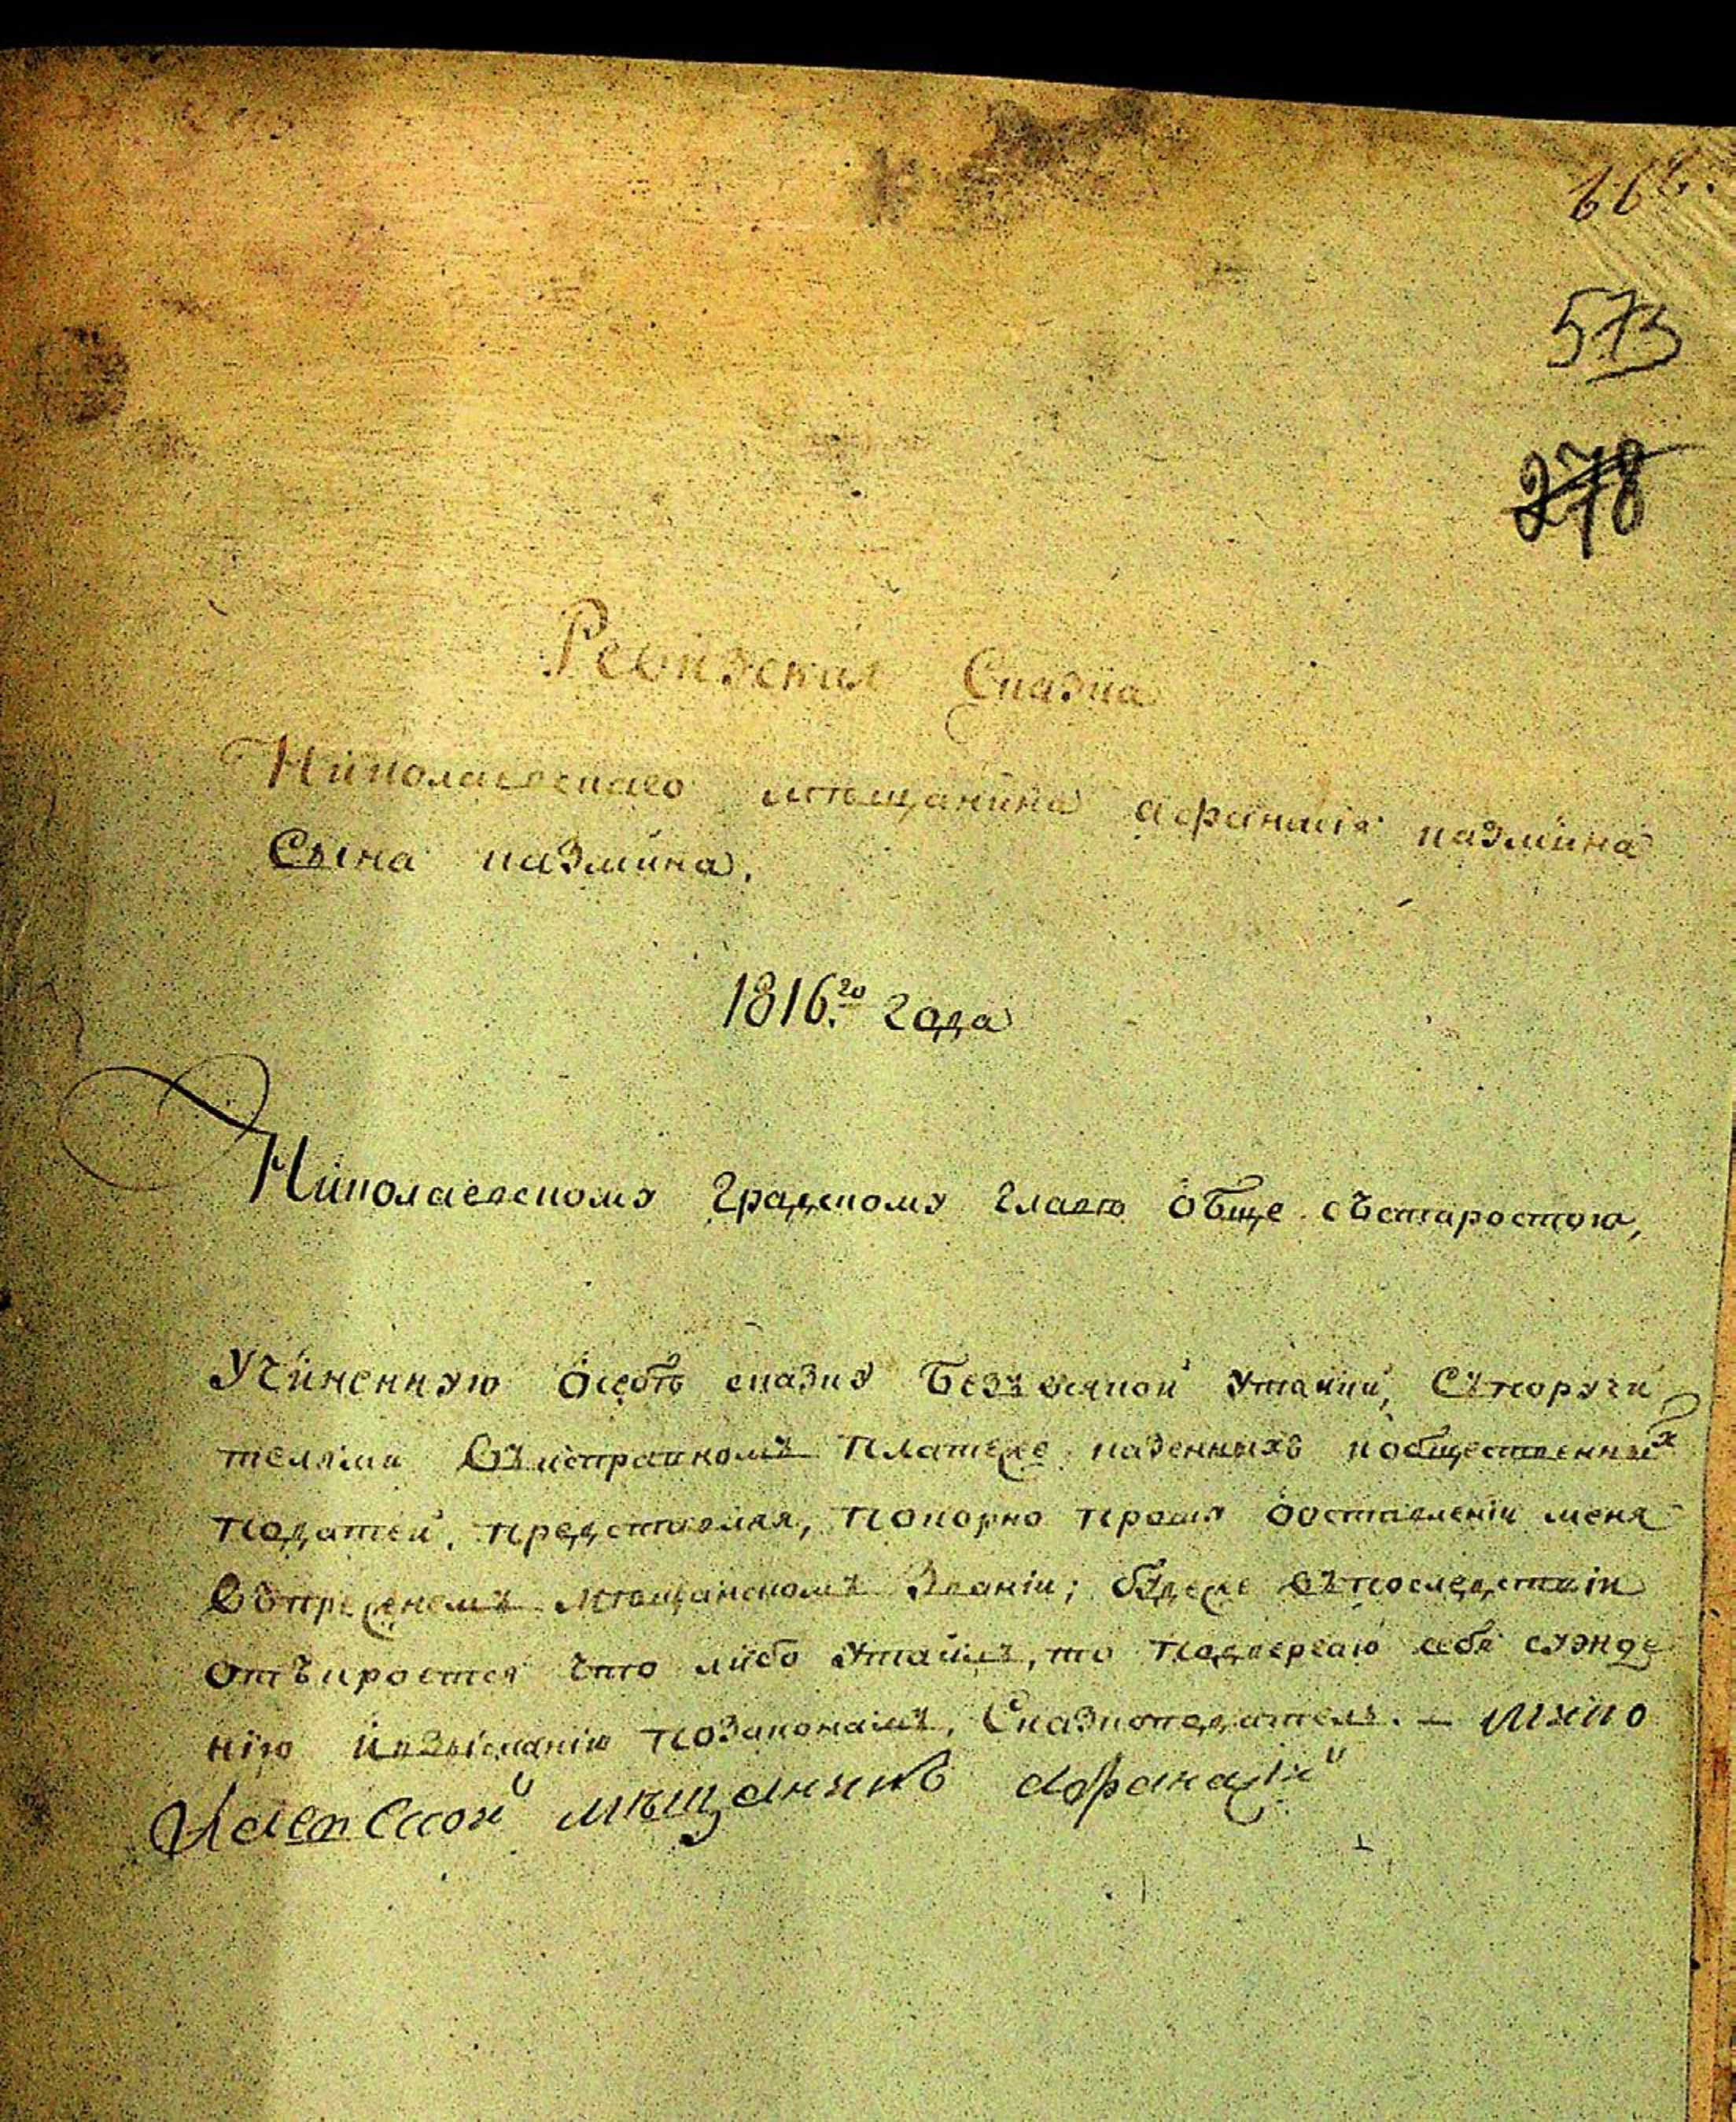 573
278
Ревизская Сказка
Николаевскаго мѣщанина афанасия казмина
Сына казмина.
1816.го года
Николаевскому градскому главѣ обще състаростою,
Учиненную осебѣ сказку безъ всякой утайки, Съпоручи
телями въисправномъ платеже казенныхъ иобщественныхъ
податей, представляя, покорно прошу обоставлении меня
въпрежнемъ мѣщанскомъ звании; буде же въпоследствіи
отъкроется что либо утайнъ, то подвергаю себя сужде
нію ивзысканію позаконамъ, Сказкоподатель. — нико
лаевской мѣщининъ афанасий